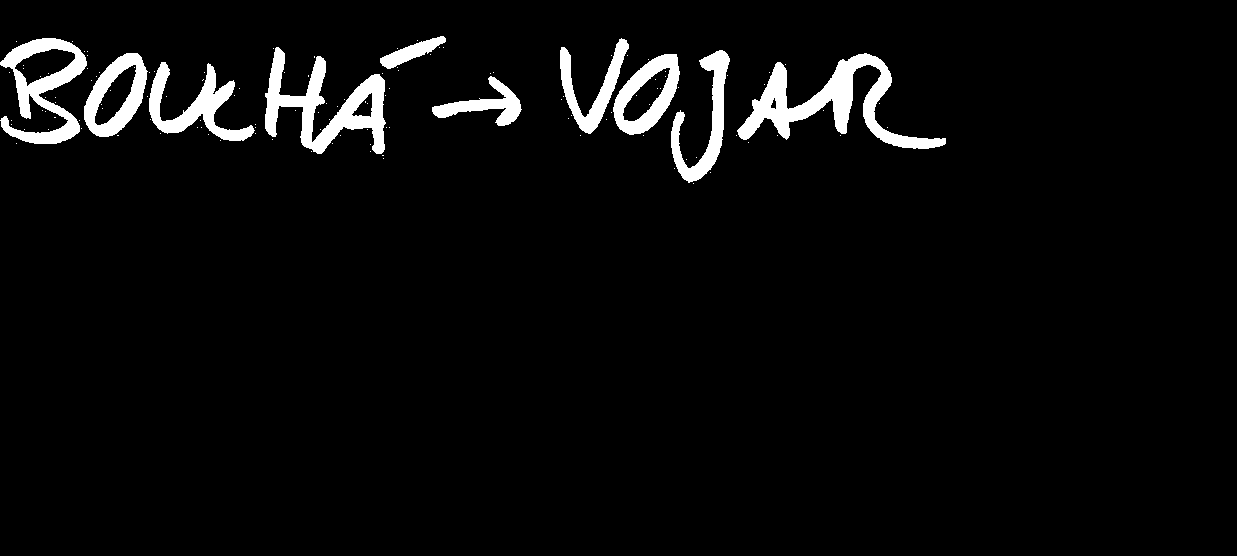 BOUCHÁ → VOJAR